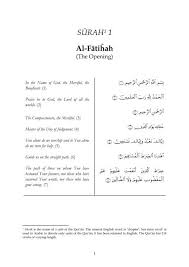 SŪRAH¹ 1
Al-Fātiḥah
(The Opening)
In the Name of God, the Merciful, the
Beneficent (1)
Praise be to God, the Lord of all the
worlds. (2)
The Compassionate, the Merciful. (3)
Master of the Day of Judgement. (4)
You alone do we worship and to You alone
do we turn for help. (5)
Guide us to the straight path: (6)
The path of those on whom You have
bestowed Your favours, not those who have
incurred Your wrath, nor those who have
gone astray. (7)
بِسْمِ اللَّهِ الرَّحْمَٰنِ الرَّحِيمِ
الْحَمْدُ لِلَّهِ رَبِّ الْعَالَمِينَ
الرَّحْمَٰنِ الرَّحِيمِ
مَالِكِ يَوْمِ الدِّينِ
إِيَّاكَ نَعْبُدُ وَإِيَّاكَ نَسْتَعِينُ
اهْدِنَا الصِّرَاطَ الْمُسْتَقِيمَ
صِرَاطَ الَّذِينَ أَنْعَمْتَ عَلَيْهِمْ غَيْرِ
الْمَغْضُوبِ عَلَيْهِمْ وَلَا الضَّالِّينَ
1